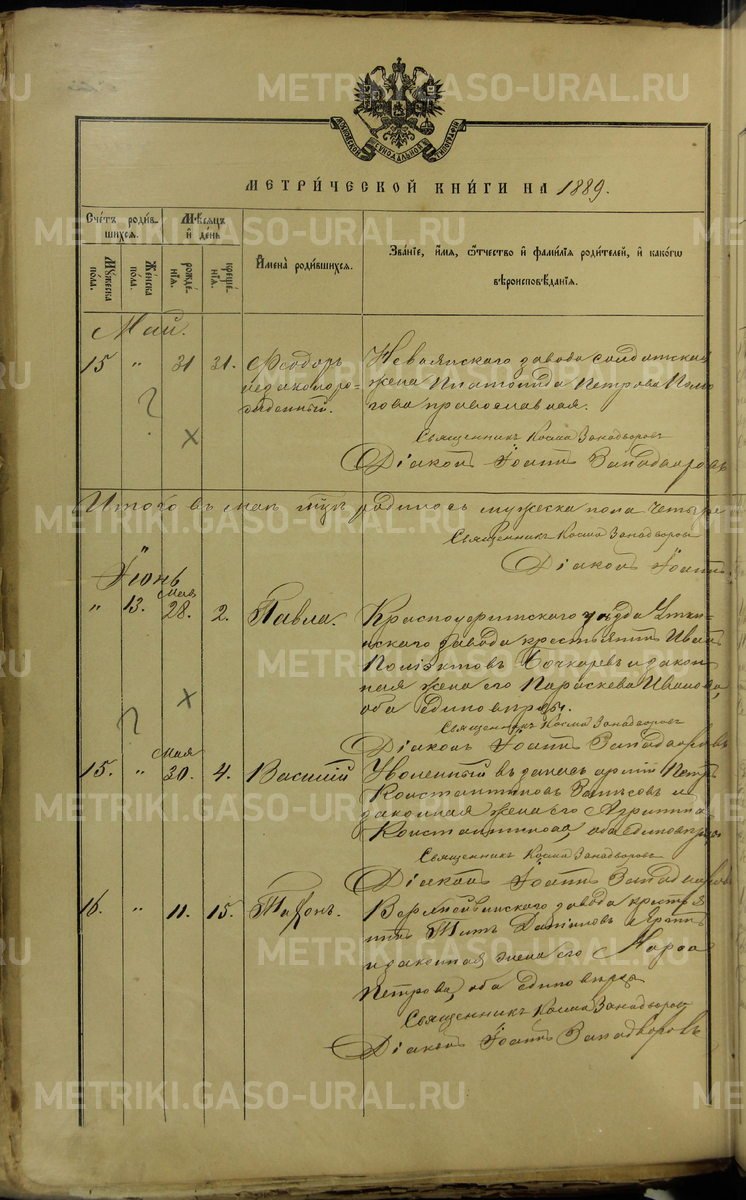 METRIKI.GASO-URAL.RU
МЕТРИ́ЧЕСКОЙ КНИ́ГИ НА 1889.
Сче́тъ роди́в-
шихся.
Мѣ́сяцъ
и҆ де́нь
Му́жеска
по́ла.
Же́нска
по́ла.
рожде́-
нїѧ.
креще́-
нїѧ.
И҆мена̀ роди́вшихся.
Зва́нїе, и҆́мя, ѻ҆́тчество и҆ фами́лїя роди́телей, и҆ како́гѡ
вѣроисповѣ́данїя.
Май.
15 " 31 31. Ѳеодоръ
незаконоро-
жденный.
Невьянскаго завода солдатская
жена Платонида Петрова
православная.
Священникъ Косма Занадворовъ
Діаконъ Іоаннъ Занадворовъ
Итого въ маѣ родилось мужеска пола четыре
Священникъ Косма Занадворовъ
Діаконъ Іоаннъ
Іюнь
" 13. Мая 28. 2. Павла.
Красноуфимскаго уѣзда Утки-
нскаго завода крестьянинъ Иванъ
Поліэктовъ Бочкаревъ и закон-
ная жена его Параскева Иванова,
оба единовѣрцы.
Священникъ Косма Занадворовъ
Діаконъ Іоаннъ Занадворовъ
15. " Мая 30. 4. Василій
Уволенный въ запасъ арміи Петръ
Константиновъ и
законная жена его Агриппина
Константинова, оба единовѣрцы
Священникъ Косма Занадворовъ
Діаконъ Іоаннъ Занадворовъ
16. " 11. 15. Тихонъ.
Верхнейвинскаго завода крестья-
нинъ Титъ
и законная жена его Марѳа
Петрова, оба единовѣрцы
Священникъ Косма Занадворовъ
Діаконъ Іоаннъ Занадворовъ